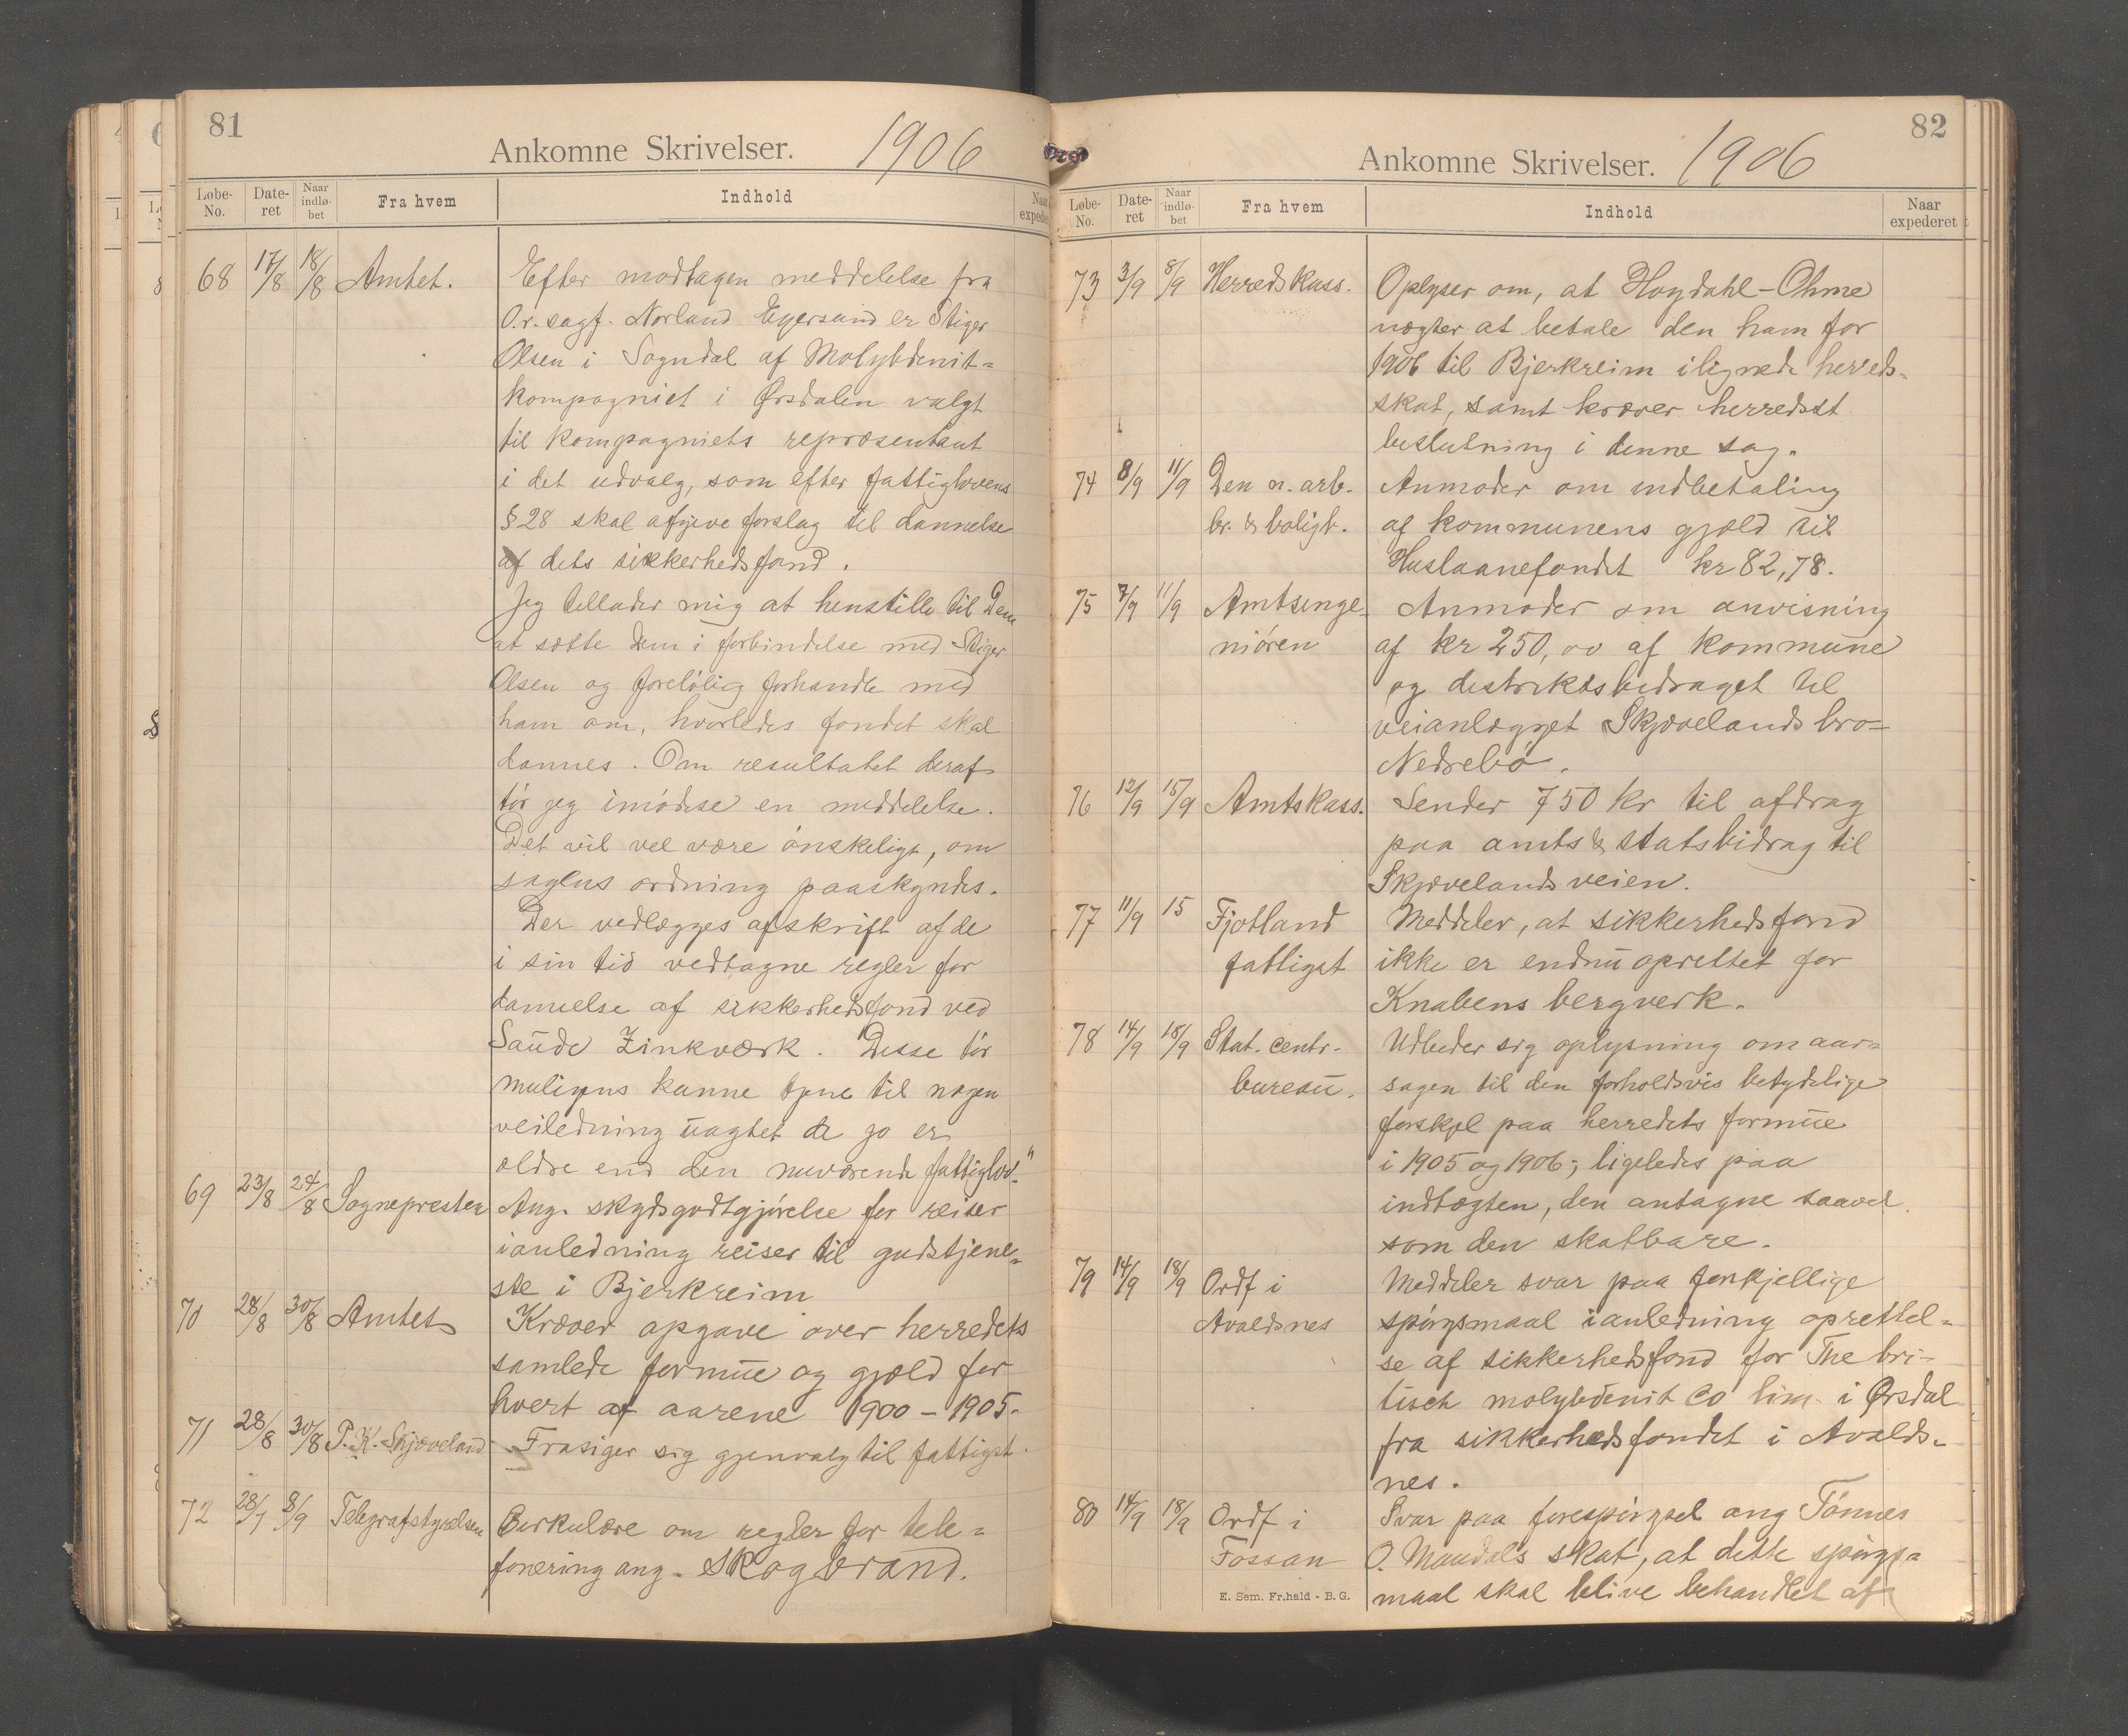 81
Ankomne Skrivelser. 1906
Løbe-No. Date-ret Naar indlø-bet Fra hvem Indhold Naar
68 17/8 18/8 Amtet. Efter modtagen meddelelse fra
O.r. sagf. Norland Egersund er Stiger
Olsen i Sogndal af Molybdenit=
kompagniet i Ørsdalen valgt
til kompagniets repræsentant
i det udvalg, som efter fattiglovens
§ 28 skal afgive forslag til dannelse
af dets sikkerhedsfond.
Jeg tillader mig at henstille til Dem
at sætte Dem i forbindelse med Stiger
Olsen og foreløbig forhandle med
ham om, hvorledes fondet skal
dannes. Om resultatet deraf
tør jeg imødese en meddelelse.
Det vil vel være ønskeligt, om
sagens ordning paaskyndes.
Der vedlægges afskrift af de
i sin tid vedtagne regler for
dannelse af sikkerhedsfond ved
Saude Zinkværk. Disse tør
muligens kunne tjene til nogen
veiledning uagtet de jo er
ældre end den nuværende fattiglov."
69 23/8 24/8 Sognepresten Ang. skydsgodtgjørelse for reiser
ianledning reiser til gudstjene=
ste i Bjerkreim
70 28/8 30/8 Amtet Kræver opgave over herredets
samlede formue og gjæld for
hvert af aarene 1900 – 1905.
71 28/8 30/8 P. K. Skjæveland Frasiger sig gjenvalg til fattigst.
72 28/7 8/9 Telegrafstyrelsen Cirkulære om regler for tele=
fonering ang. Skogbrand.
82
Ankomne Skrivelser. 1906
Løbe-No. Date-ret Naar indlø-bet Fra hvem Indhold Naar expederet
73 3/9 8/9 Herredskass. Oplyser om, at Hogdahl-Ohme
nægter at betale den ham for
1906 til Bjerkreim ilignede herreds=
skat, samt kræver herredsst
beslutning i denne sag.
74 8/9 11/9 Den n. arb. Anmoder om indbetaling
br. & boligb. af kommunens gjæld til
Huslaanefondet kr 82,78.
75 7/9 11/9 Amtsinge- Anmoder om anvisning
niøren af kr 250,00 af kommune
og distriktsbidraget til
veianlægget Skjævelandsbro=
Nedrebø.
76 12/9 15/9 Amtskass. Sender 750 kr til afdrag
paa amts & statsbidrag til
Skjævelandsveien.
77 11/9 15 Fjotland Meddeler, at sikkerhedsfond
fattigst ikke er endnu oprettet for
Knabens bergverk.
78 14/9 18/9 Stat. centr- Udbeder sig oplysning om aar=
bureau. sagen til den forholdsvis betydelige
forskjel paa herredets formue
i 1905 og 1906; ligeledes paa
indtægten, den antagne saavel
som den skatbare.
79 14/9 18/9 Ordf i Meddeler svar paa forskjellige
Avaldsnes spørgsmaal ianledning oprettel=
se af sikkerhedsfond for The bri=
tisch molybdenit Co lim. i Ørsdal
fra sikkerhedsfondet i Avalds=
nes.
80 14/9 18/9 Ordf i Svar paa forespørgsel ang Tønnes
Fossan O. Maudals skat, at dette spørgs=
maal skal blive behandlet af
E. Sem. Fr.hald - B. G.